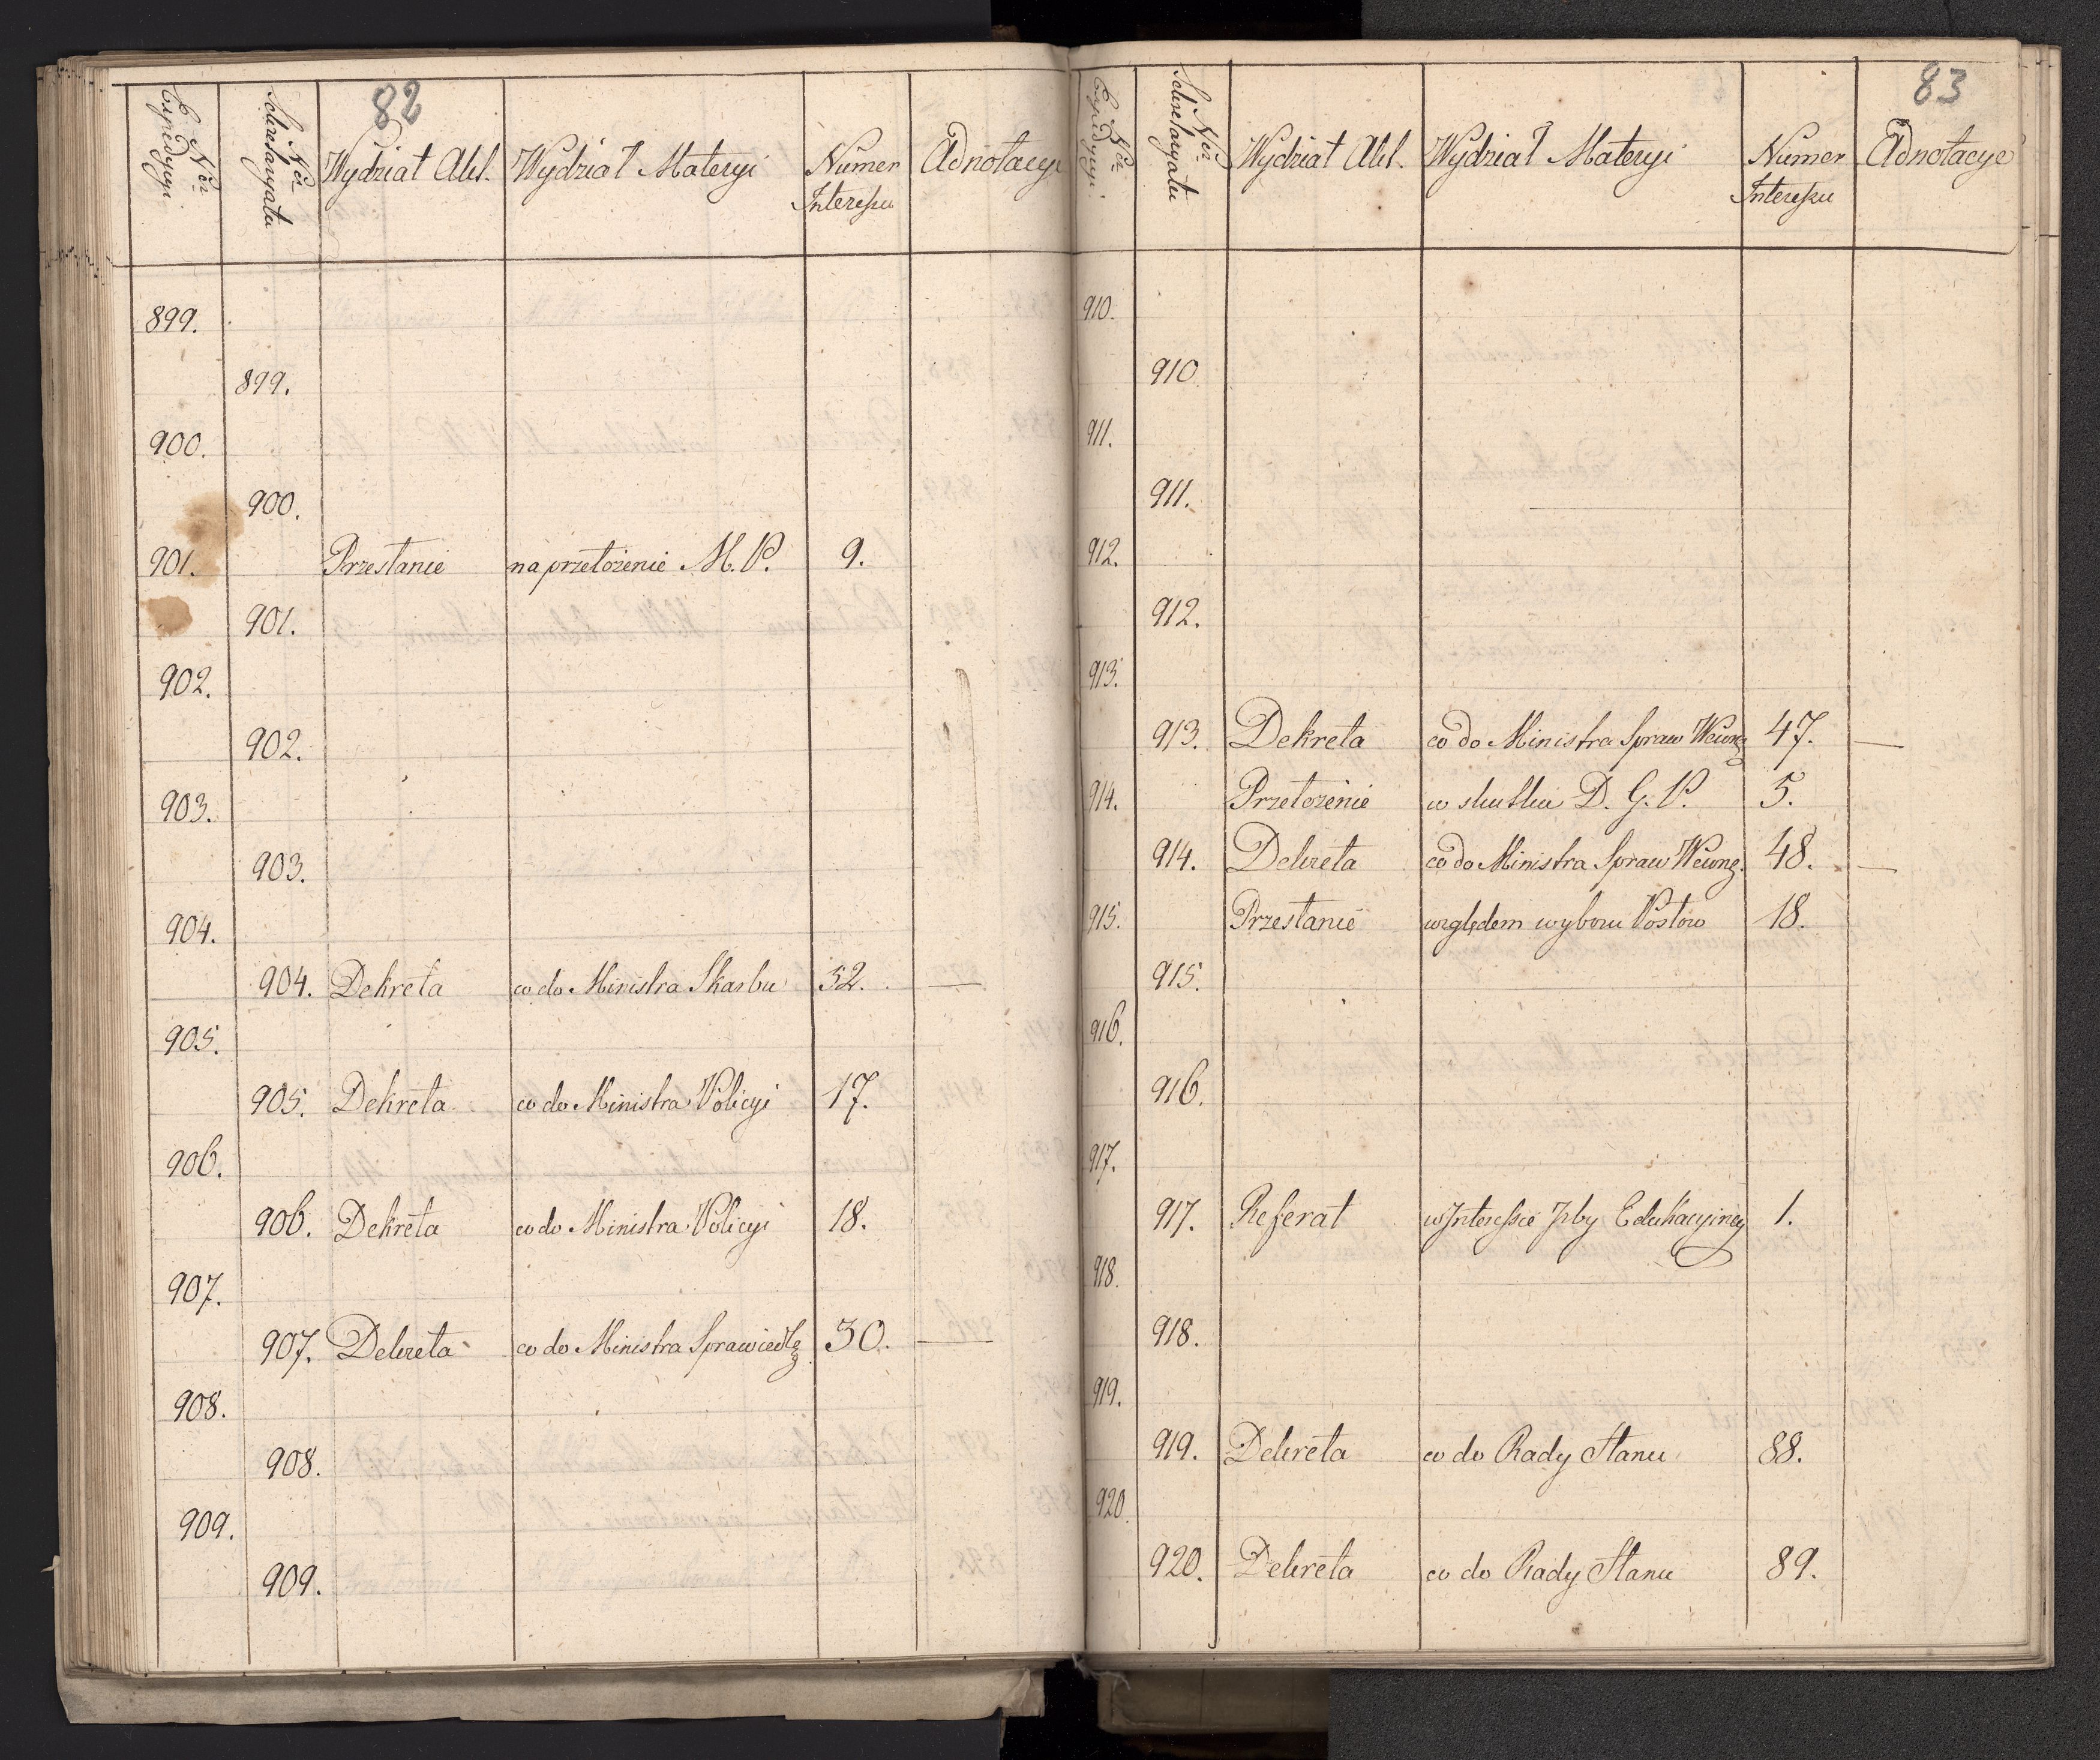 82
Nor Expedycyi
Nor Sekretaryatu
Wydział Akt.
Wydział Materyi
Numer Interessu
Adnotacye
899.
899.
900.
900.
901. Przesłanie na przełożenie M. P. 9.
901.
902.
902.
903.
903.
904.
904. Dekreta co do Ministra Skarbu 52. —
905.
905. Dekreta co do Ministra Policyi 17.
906.
906. Dekreta co do Ministra Policyi 18.
907.
907. Dekreta co do Ministra Sprawiedlg 30. —
908.
908.
909.
909.
83
Nor Expedycyi
Nor Sekretaryatu
Wydział Akt.
Wydział Materyi
Numer Interessu
Adnotacye
910.
910
911.
911.
912.
912.
913.
913. Dekreta co do Ministra Spraw Wewng 47. —
914. Przełożenie w skutku D. G. P. 5.
914. Dekreta co do Ministra Spraw Wewng. 48. —
915. Przesłanie względem wyboru Posłow 18.
915.
916.
916.
917.
917. Referat w Interessie Izby Edukacyiney 1.
918.
918.
919.
919. Dekreta co do Rady Stanu 88.
920.
920. Dekreta co do Rady Stanu 89.